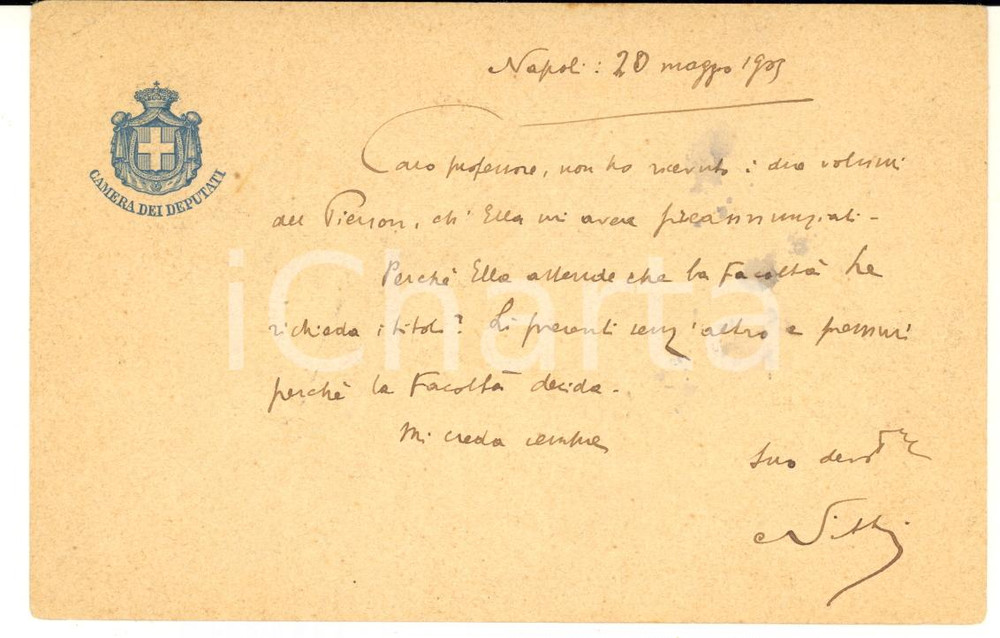 Napoli: 20 maggio 1905
CAMERA DEI DEPUTATI
Caro professore, non ho ricevuto i due volumi
del Pierson, ch'Ella mi aveva preannunziati.
Perchè Ella attende che la Facoltà Le
richieda i titoli? Li presenti senz'altro e pressi
perchè la Facoltà decida.
Mi creda sempre
Suo dev.mo
Nitti
iCharta